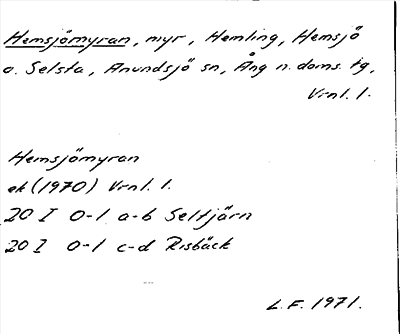 Hemsjömyran, myr, Hemling, Hemsjö
o. Selsta, Anundsjö sn, Ång n. doms. tg,
Vrnl. l.
Hemsjömyran
ek (1970) Vrnl. l.
20 I 0-1 a-b Seltjärn
20 I 0-1 c-d Risbäck
L.F. 1971.